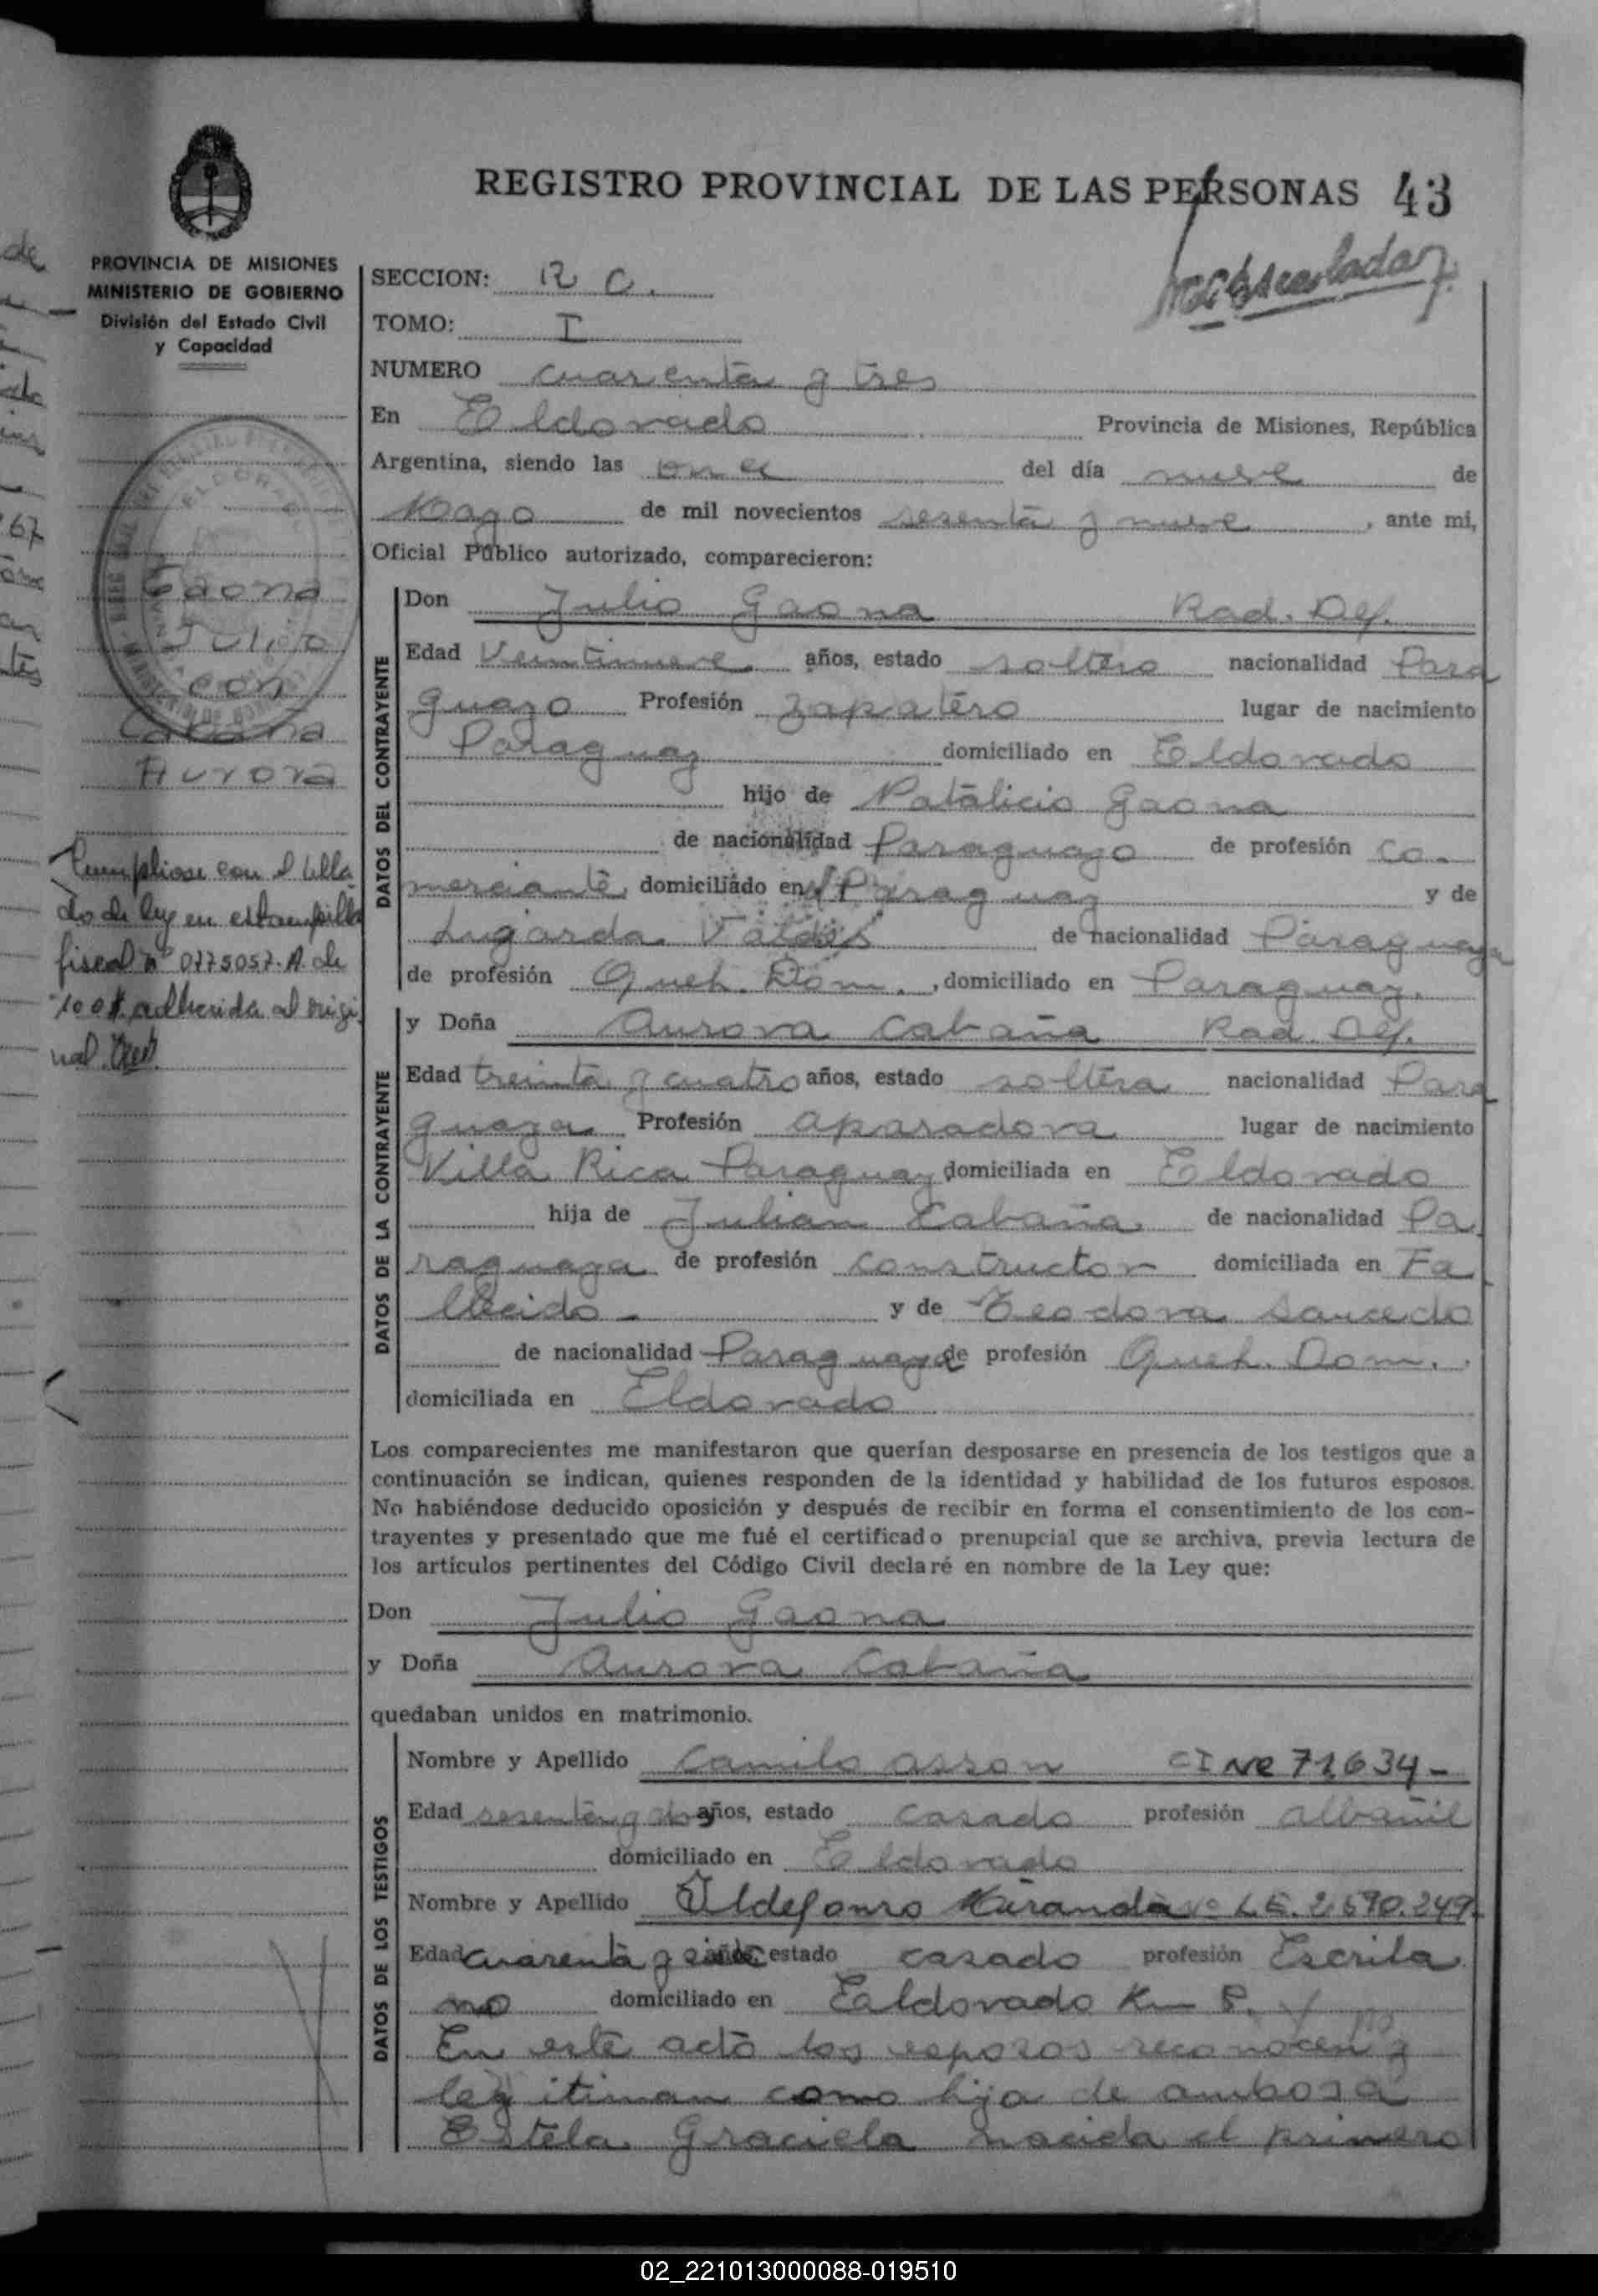 REGISTRO PROVINCIAL DE LAS PERSONAS 43
PROVINCIA DE MISIONES
MINISTERIO DE GOBIERNO
División del Estado Civil
y Capacidad
SECCION: R C.
TOMO: I
NUMERO cuarenta y tres
En Eldorado Provincia de Misiones, República
Argentina, siendo las once del día nueve de
Mayo de mil novecientos sesenta y nueve, ante mi,
Oficial Público autorizado, comparecieron:
Gaona
Julio
con
Cabaña
Aurora
Cumpliose con el sella
do de ley en estampilla
fiscal nº 0775057-A de
100$ adherida al origi
nal.
DATOS DEL CONTRAYENTE
Don Julio Gaona Rad. Def.
Edad Veintinueve años, estado soltero nacionalidad Para
guayo Profesión zapatero lugar de nacimiento
Paraguay domiciliado en Eldorado
hijo de Natalicio Gaona
de nacionalidad Paraguayo de profesión co-
merciante domiciliado en Paraguay y de
Lugarda Valdés de nacionalidad Paraguaya
de profesión Queh. Dom., domiciliado en Paraguay.
DATOS DE LA CONTRAYENTE
y Doña Aurora Cabaña Rad. Def.
Edad treinta y cuatro años, estado soltera nacionalidad Para
guaya Profesión aparadora lugar de nacimiento
Villa Rica Paraguay domiciliada en Eldorado
hija de Julian Cabaña de nacionalidad Pa
raguaya de profesión constructor domiciliada en Fa
llecido - y de Teodora Saucedo
de nacionalidad Paraguaya de profesión Queh. Dom.
domiciliada en Eldorado
Los comparecientes me manifestaron que querían desposarse en presencia de los testigos que a
continuación se indican, quienes responden de la identidad y habilidad de los futuros esposos.
No habiéndose deducido oposición y después de recibir en forma el consentimiento de los con-
trayentes y presentado que me fué el certificado prenupcial que se archiva, previa lectura de
los artículos pertinentes del Código Civil declaré en nombre de la Ley que:
Don Julio Gaona
y Doña Aurora Cabaña
quedaban unidos en matrimonio.
DATOS DE LOS TESTIGOS
Nombre y Apellido Camilo CI Nº 71634-
Edad sesenta y años, estado casado profesión albañil
domiciliado en Eldorado
Nombre y Apellido Ildefonso Miranda Nº L.E. 2.590.249
Edad cuarenta y estado casado profesión Escriba
no domiciliado en Ealdorado Km 8.
En este acto los esposos reconocen y
legitiman como hija de ambos a
Estela Graciela nacida el primero
02_221013000088-019510